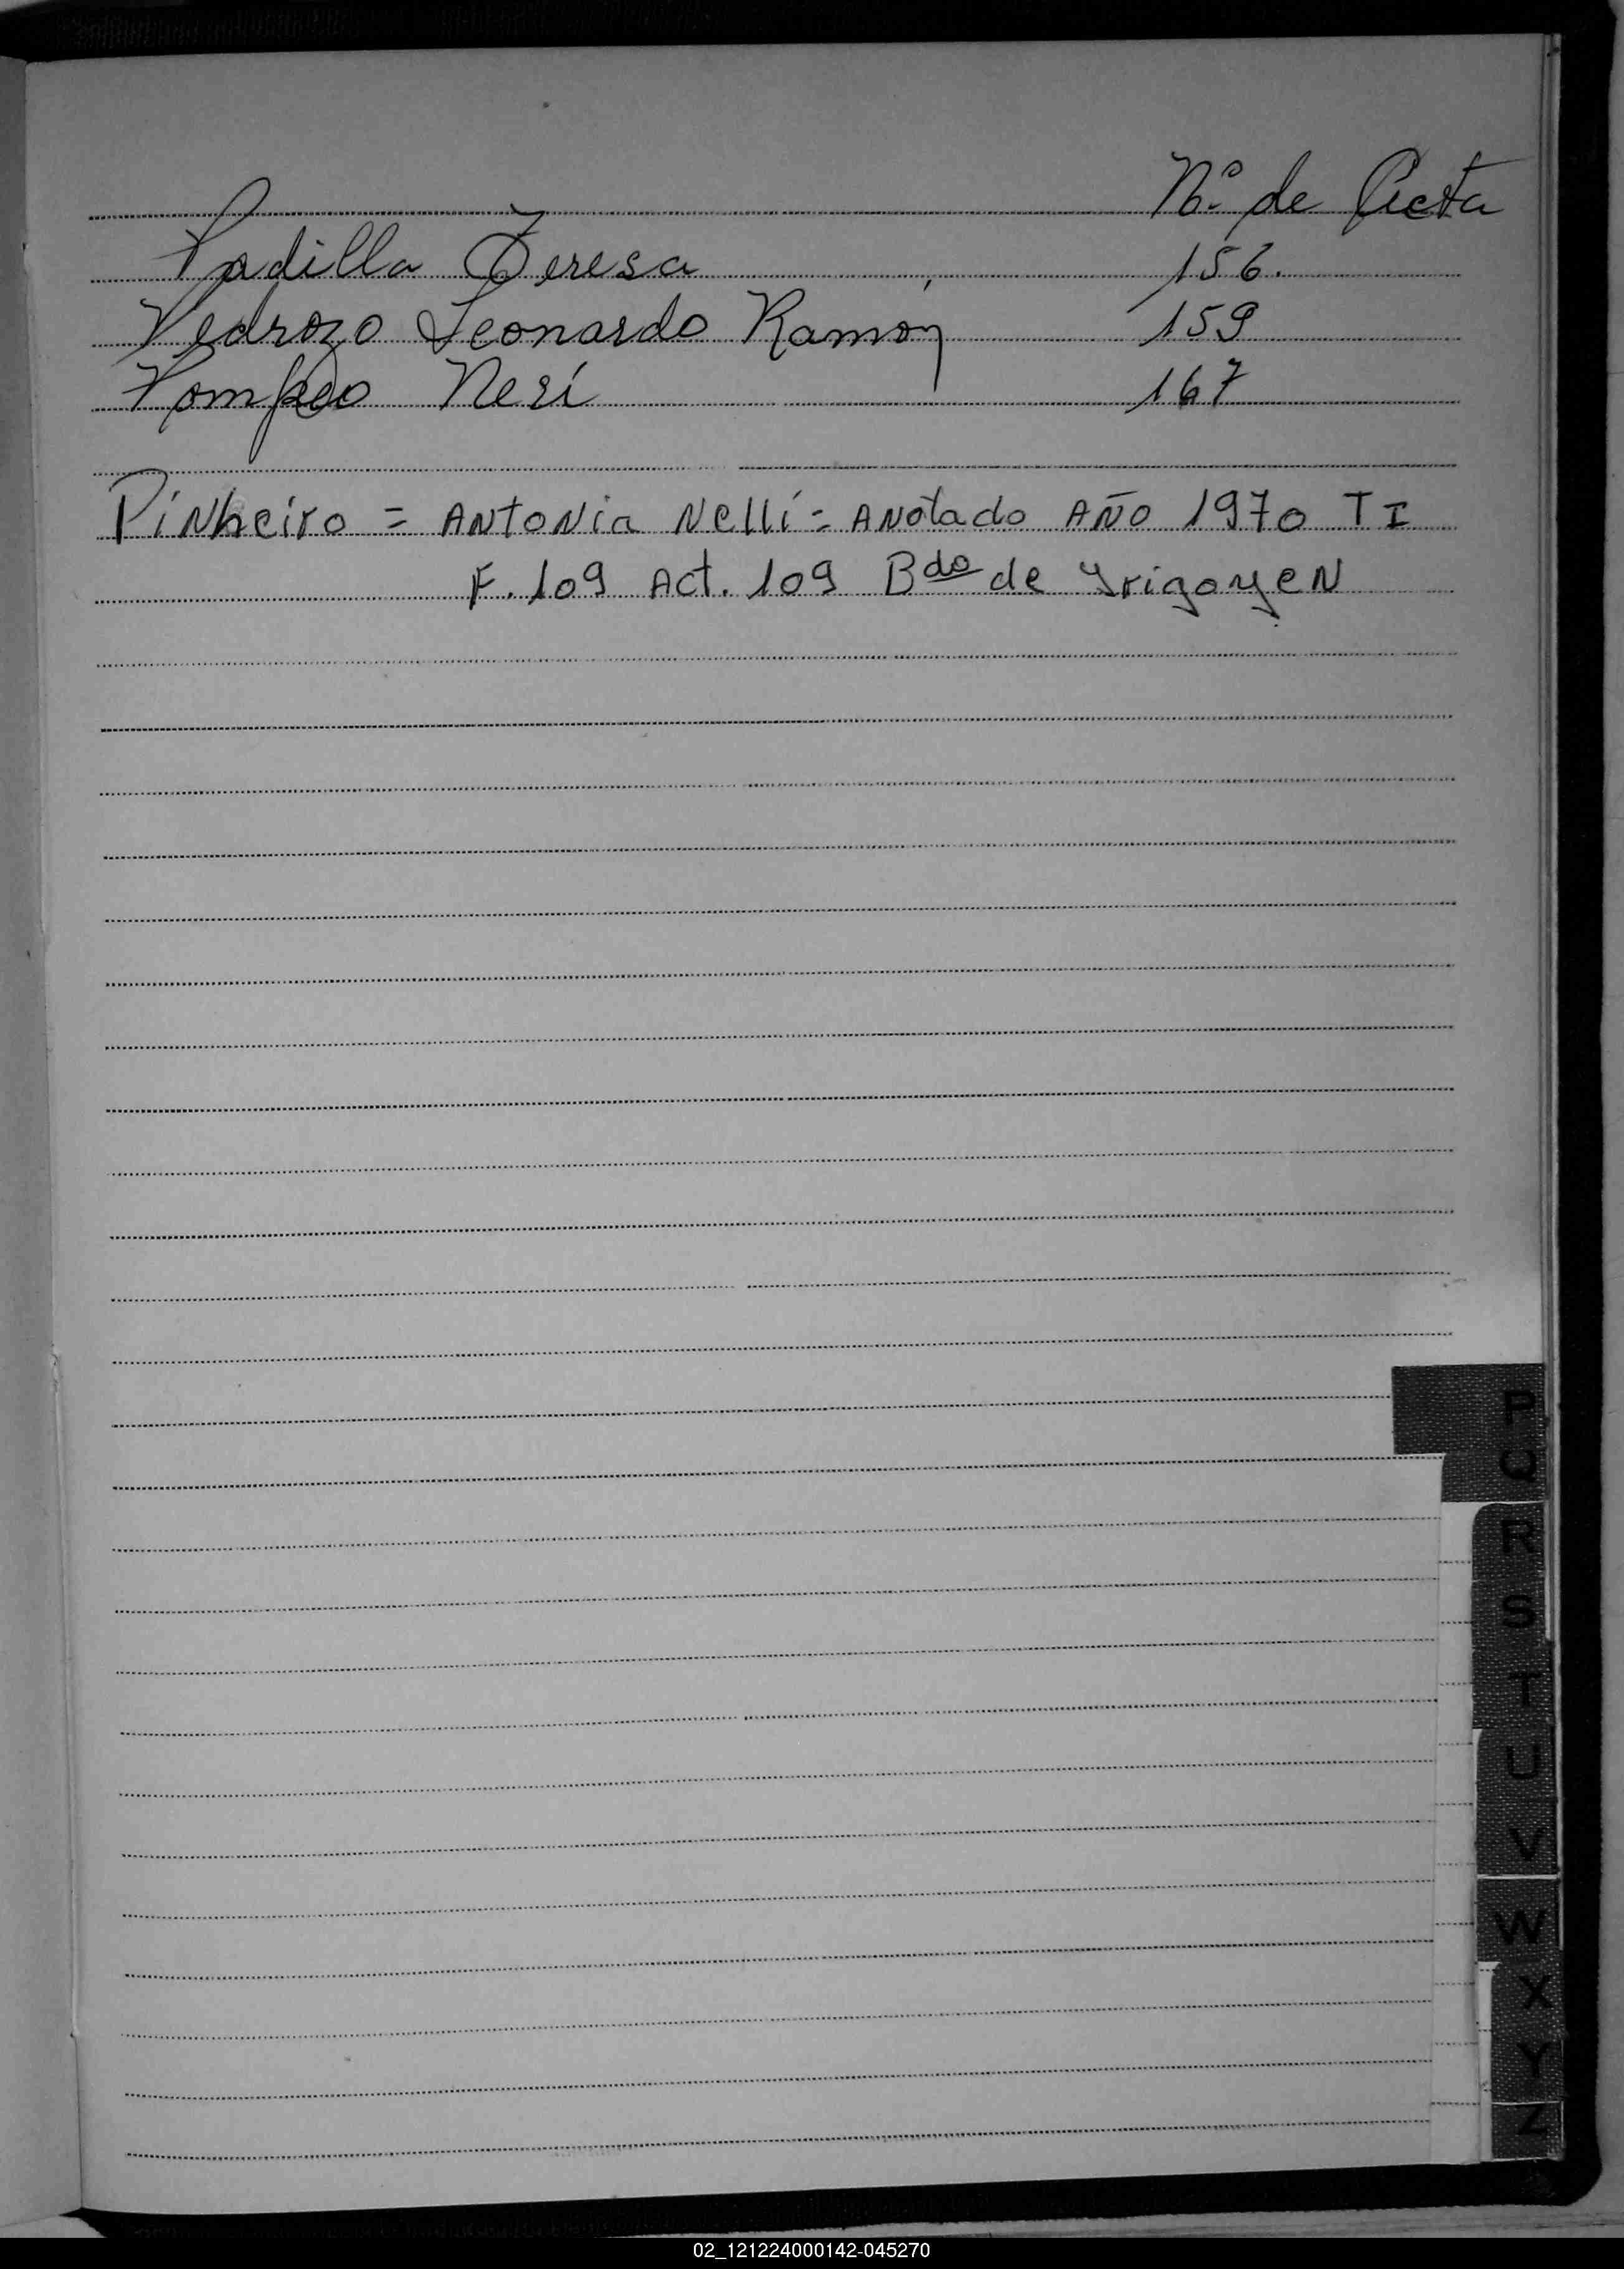 Nº de Acta
Padilla Teresa 156.
Pedrozo Leonardo Ramon 159
Pompeo Neri 167
Pinheiro = Antonia Nelli = Anotado Año 1970 T I
F. 109 Act. 109 Bdo de Yrigoyen
P
Q
R
S
T
U
V
W
X
Y
Z
02_121224000142-045270